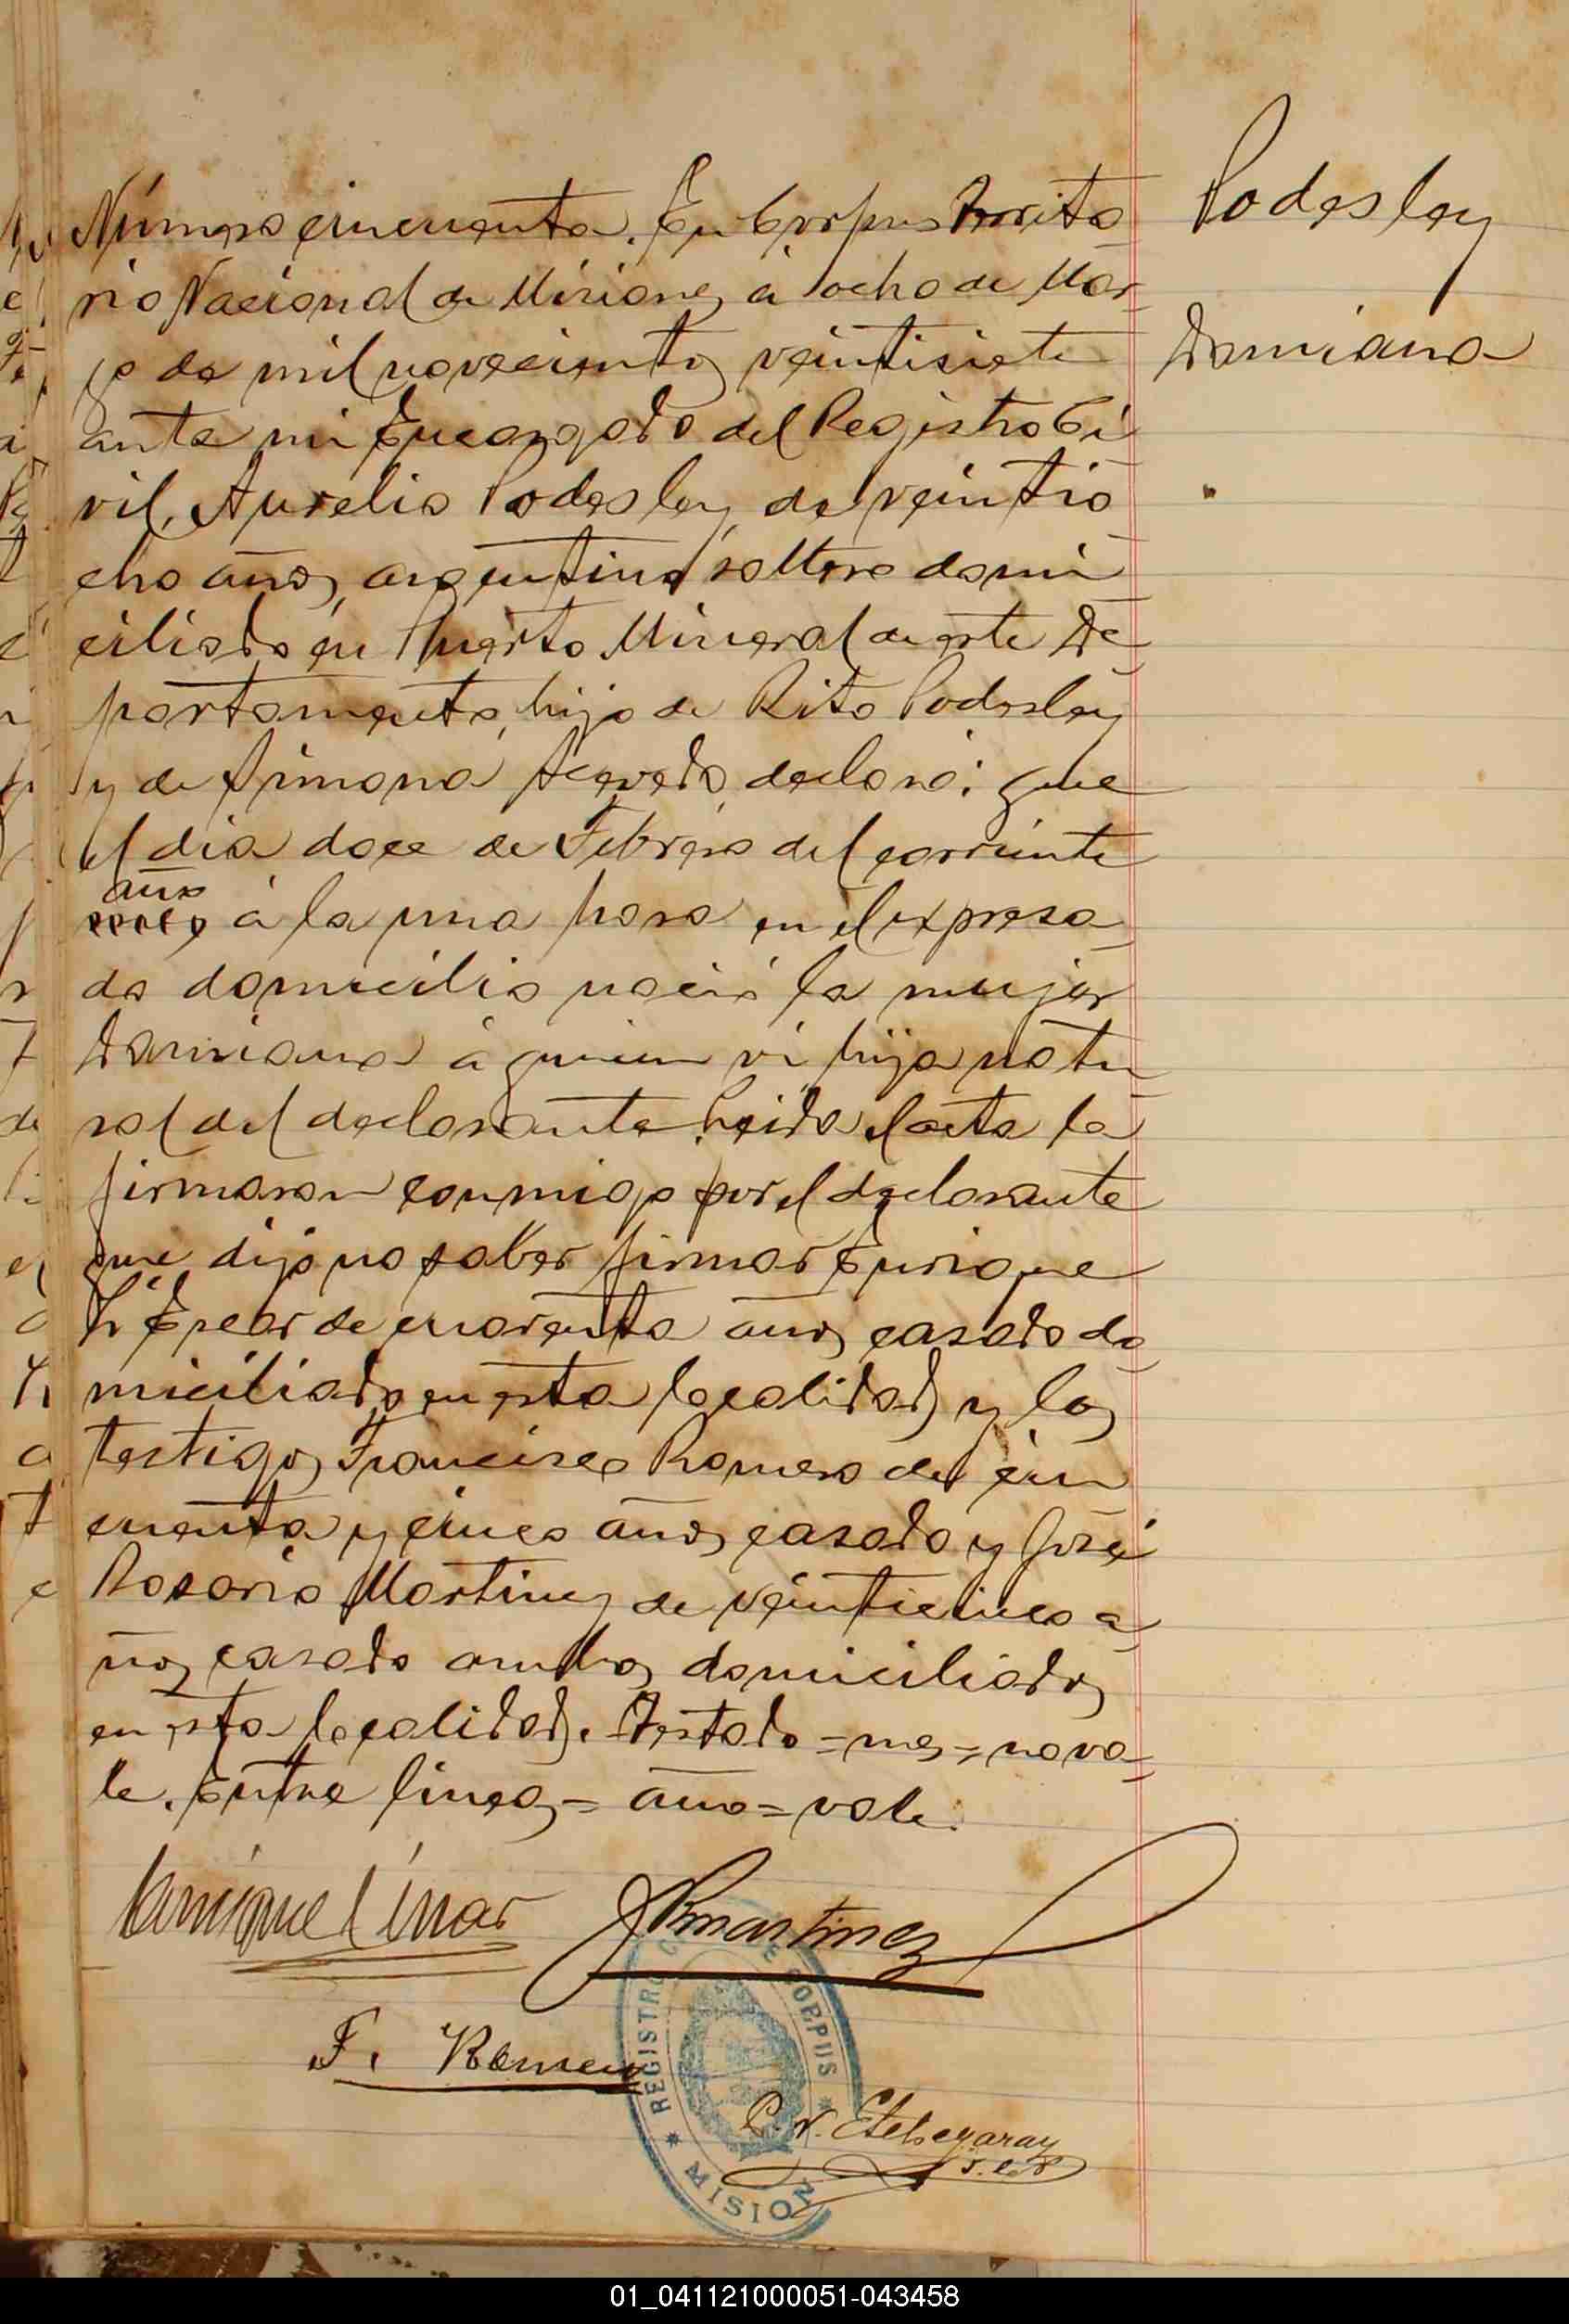 Podesley
Damiana
Número cincuenta. En Corpus Territo
rio Nacional de Misiones, á ocho de Mar
zo de mil novecientos veintisiete
ante mi Encargado del Registro Ci
vil, Aurelio Podesley, de veintio
cho años, argentino, soltero domi
ciliado en Puerto Mineral de este De
partamento, hijo de Rito Podesley
y de Simona Acevedo, declaró: que
el dia doce de Febrero del corriente
año
á la una hora en el expresa
do domicilio nació la mujer
Damiana á quien vi hija natu
ral del declarante. Leida el acta la
firmaron conmigo por el declarante
que dijo no saber firmar Enrique
de cuarenta años, casado do
miciliado en esta localidad y los
testigos Francisco Romero de cin
cuenta y cinco años, casado y José
Rosario Martinez de veinticinco a
ños, casado ambos domiciliados
en esta localidad. Testado = mes = no va
le. Entre lineas = año = vale.
Enrique
JRMartinez
F. Romero
REGISTRO C E CORPUS
* MISION
P. V. Etchegaray
01_041121000051-043458